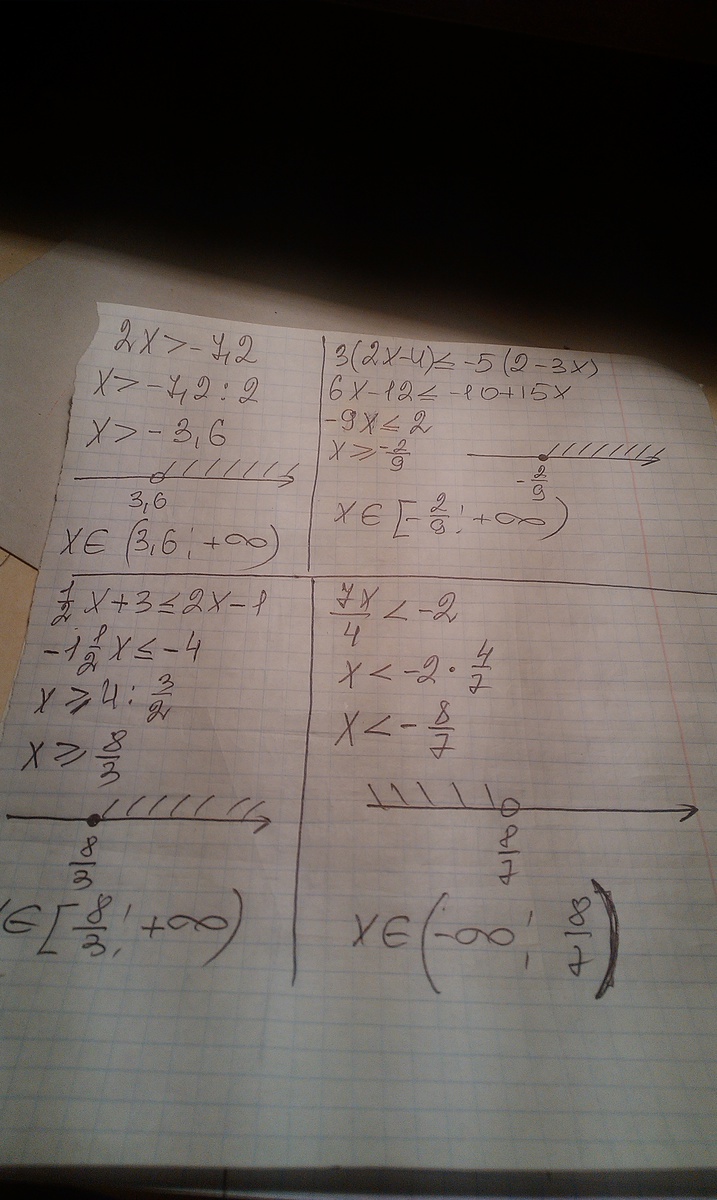 2x > -7,2
x > -7,2 : 2
x > -3,6
3,6
x ∈ (3,6; +∞)
3(2x-4) ≤ -5(2-3x)
6x-12 ≤ -10+15x
-9x ≤ 2
x ≥ -2/9
-2/9
x ∈ [-2/9; +∞)
1/2 x+3 ≤ 2x-1
-1 1/2 x ≤ -4
x ≥ 4 : 3/2
x ≥ 8/3
8/3
x ∈ [8/3; +∞)
7x/4 < -2
x < -2 · 4/7
x < -8/7
8/7
x ∈ (-∞; 8/7)